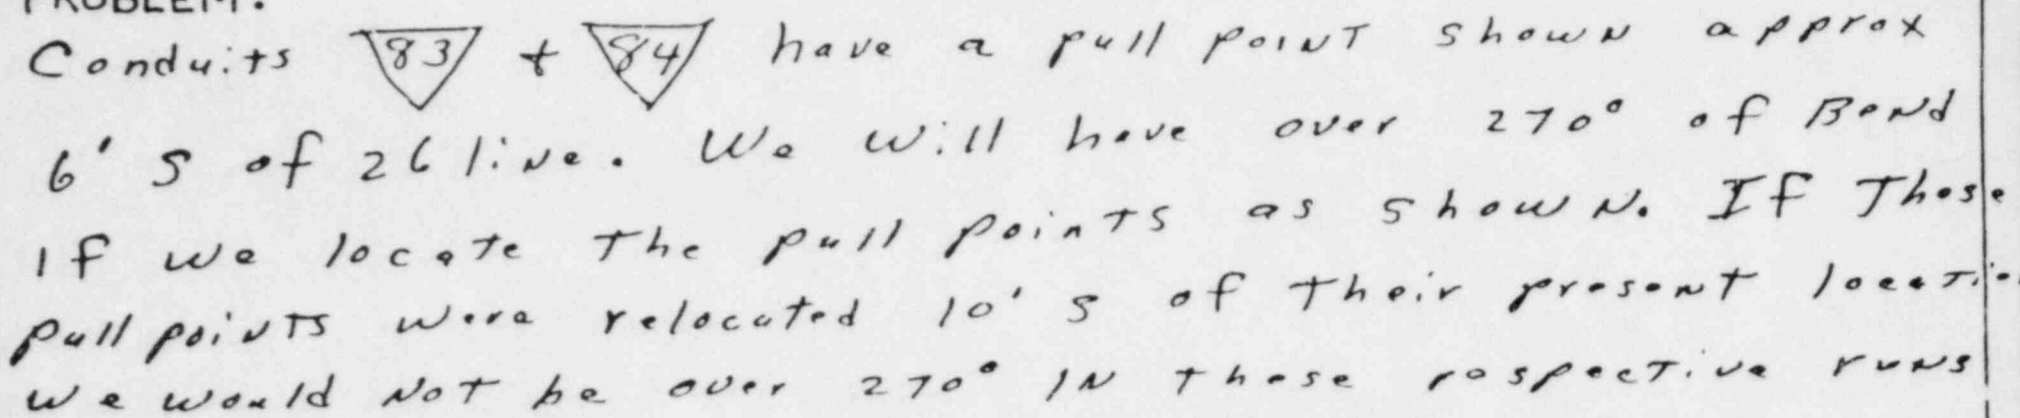 PROBLEM:
Conduits 83 + 84 have a pull point shown approx
6' S of 26 line. We will have over 270° of Bend
If we locate the pull points as shown. If These
pull points were relocated 10' S of their present locatio
we would not be over 270° IN these respective runs